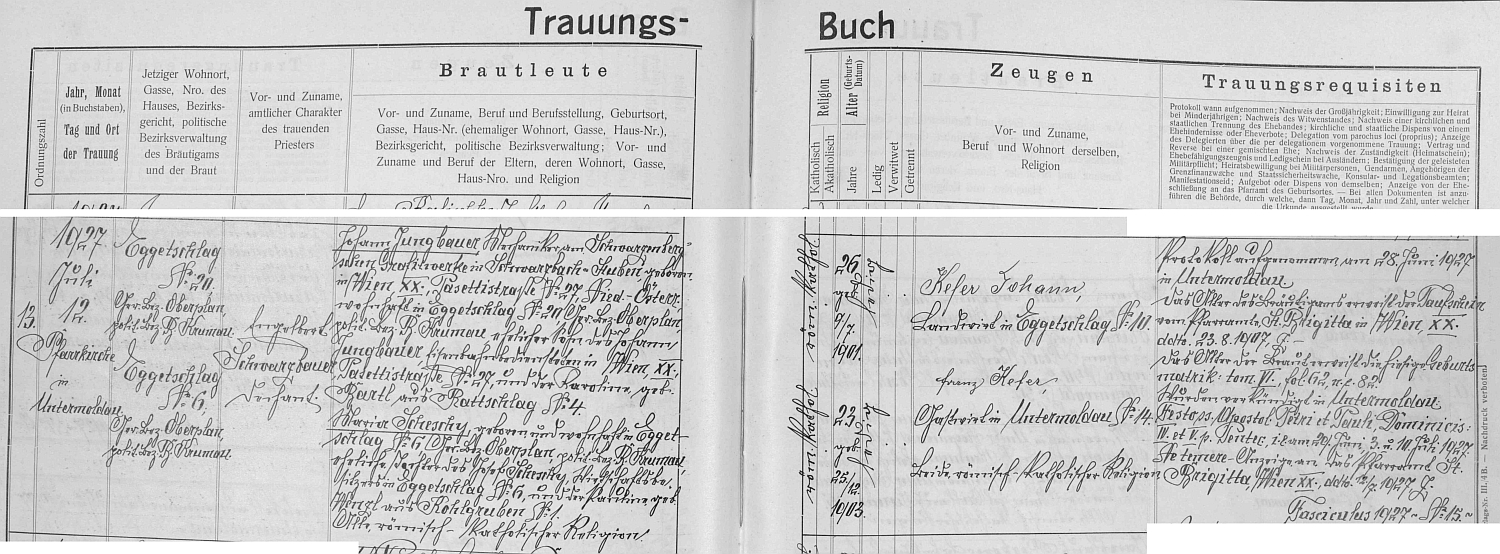 Trauungs-
Buch
Ordnungszahl
Jahr, Monat
(in Buchstaben),
Tag und Ort
der Trauung
Jetziger Wohnort,
Gasse, Nro. des
Hauses, Bezirks-
gericht, politische
Bezirksverwaltung
des Bräutigams
und der Braut
Vor- und Zuname,
amtlicher Charakter
des trauenden
Priesters
Brautleute
Vor- und Zuname, Beruf und Berufsstellung, Geburtsort,
Gasse, Haus-Nr. (ehemaliger Wohnort, Gasse, Haus-Nr.),
Bezirksgericht, politische Bezirksverwaltung; Vor- und
Zuname und Beruf der Eltern, deren Wohnort, Gasse,
Haus-Nro. und Religion
Religion
Katholisch
Akatholisch
Alter (Geburts-
Datum)
Jahre
Ledig
Verwitwet
Getrennt
Zeugen
Vor- und Zuname,
Beruf und Wohnort derselben,
Religion
Trauungsrequisiten
Protokoll wann aufgenommen; Nachweis der Großjährigkeit; Einwilligung zur Heirat
bei Minderjährigen; Nachweis des Witwenstandes; Nachweis einer kirchlichen und
staatlichen Trennung des Ehebandes; kirchliche und staatliche Dispens von einem
Ehehindernisse oder Eheverbote; Delegation vom parochus loci (proprius); Anzeige
des Delegierten über die per delegationem vorgenommene Trauung; Vertrag und
Reverse bei einer gemischten Ehe; Nachweis der Zuständigkeit (Heimatschein);
Ehebefähigungszeugnis und Ledigschein bei Ausländern; Bestätigung der geleisteten
Militärpflicht; Heiratsbewilligung bei Militärpersonen, Gendarmen, Angehörigen der
Grenzfinanzwache und Staatssicherheitswache, Konsular- und Legationsbeamten;
Manifestationseid; Aufgebot oder Dispens von demselben; Anzeige von der Ehe-
schließung an das Pfarramt des Geburtsortes. — Bei allen Dokumenten ist anzu-
führen die Behörde, durch welche, dann Tag, Monat, Jahr und Zahl, unter welcher
die Urkunde ausgestellt wurde.
13.
1927
Juli
12.
Pfarrkirche
in
Untermoldau
Eggetschlag
№ 20.
Ger. Bez. Oberplan,
polit. Bez. B. Krumau.
Eggetschlag
№ 6,
Ger. Bez. Oberplan,
polit. Bez. B. Krumau.
Engelbert
Schwarzbauer
Dechant.
Johann Jungbauer Mechaniker am Schwarzenberg-
schen Grafitwerke in Schwarzbach-Stuben, geboren
in Wien XX., Pasettistraße № 27, Nied-Österr.
wohnhaft in Eggetschlag № 20, Ger. Bez. Oberplan,
polit. Bez. B. Krumau ehelicher Sohn des Johann
Jungbauer, Eisenbahnbediensteten in Wien XX.,
Pasettistraße № 27, und der Karoline, geb.
Bartl aus Rattschlag № 4.
Maria Schesky, geboren und wohnhaft in Egget-
schlag № 6, Ger. Bez. Oberplan, polit. Bez. B. Krumau,
eheliche Tochter des Josef Schesky, Wirtschaftsbe-
sitzers in Eggetschlag № 6, und der Pauline, geb.
Wenzl aus Kohlgruben № 1.
Alle römisch-katholischer Religion.
26
1901.
ledig
23
25.
12.
1903.
ledig
Kefer Johann,
Landwirt in Eggetschlag № 10.
Franz Kefer,
Gastwirt in Untermoldau № 14.
Beide römisch-katholischer Religion
Protokoll aufgenommen am 28. Juni 1927
in Untermoldau.
Das Alter des Bräutigams erweist der Taufschein
vom Pfarramte St. Brigitta in Wien XX.
ddto. 23. 8. 1907.
Das Alter der Braut erweist die hiesige Geburts-
matrik: tom. VI.,
Wurden verkündigt in Untermoldau
Festo ss. Apostol. Petri et Pauli, Dominicis:
IV. et V. p. Pentec. i.e. am 29. Juni, 3. u. 10. Juli 1927.
Ne temere-Anzeige an das Pfarramt St.
Brigitta, Wien XX., ddto. 12/7. 1927
Fasciculus 1927 ~ № 15. ~
III./4B. — Nachdruck verboten.